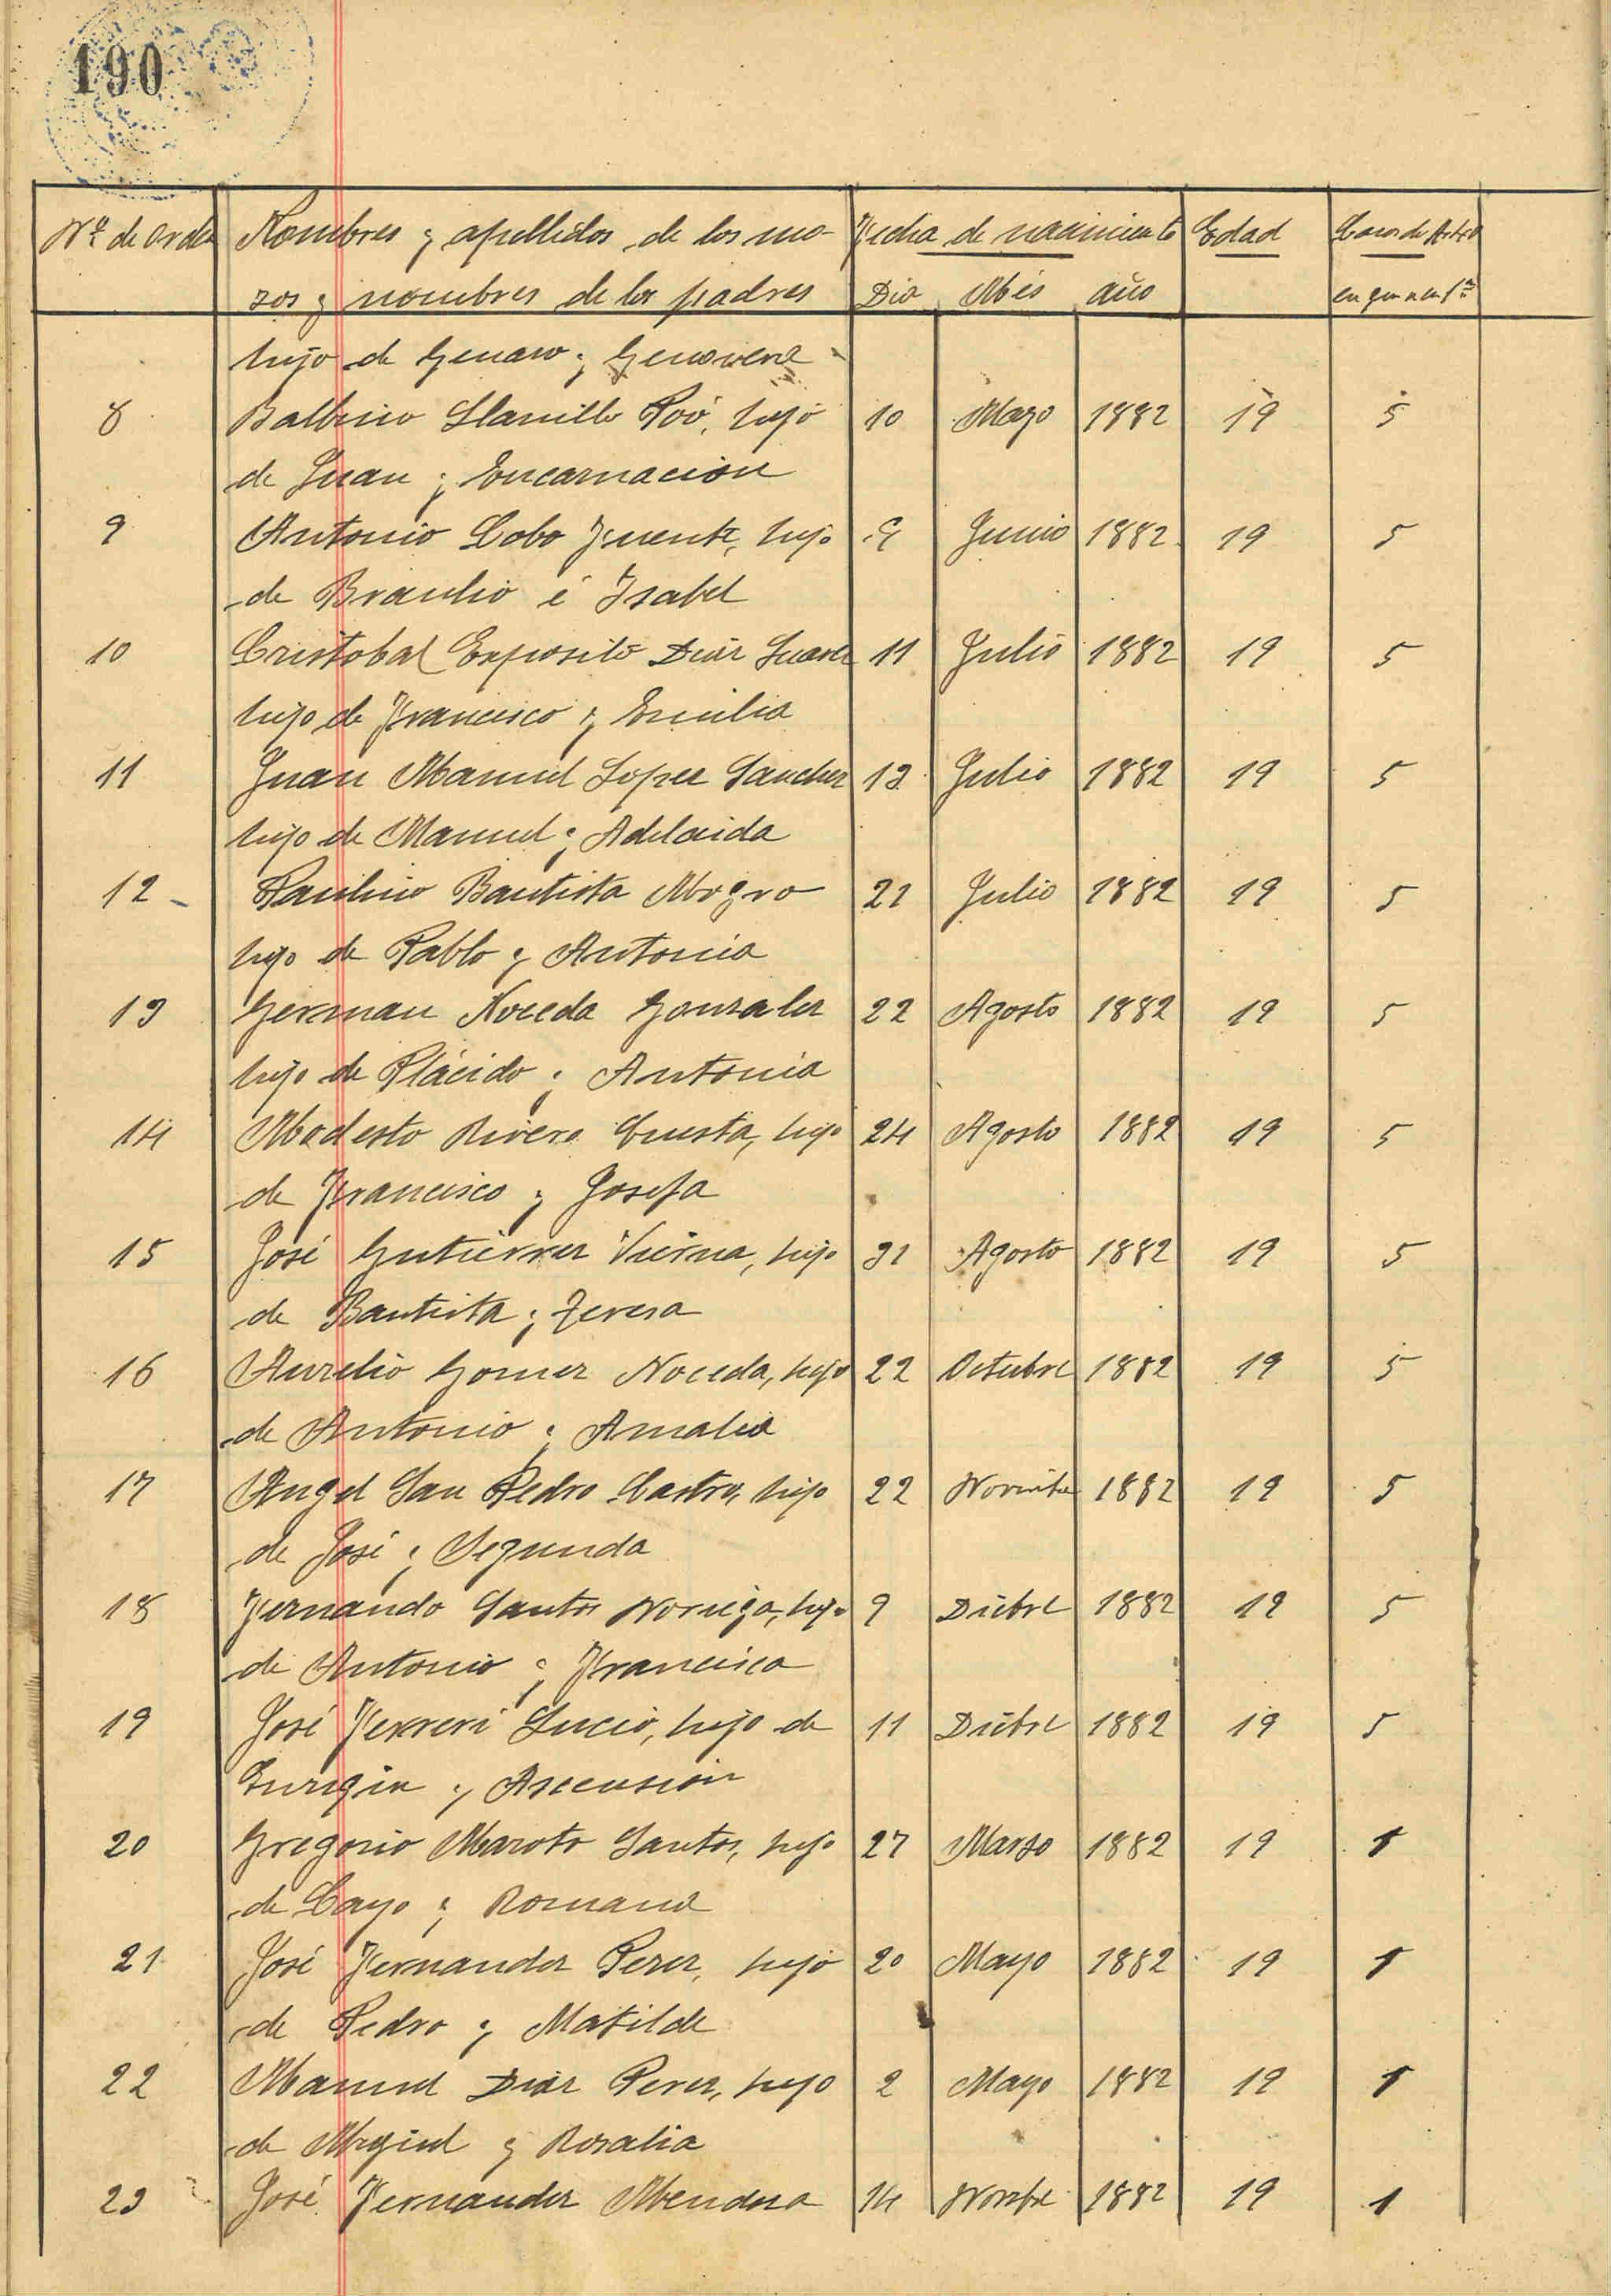 190
Nº de orden Nombres y apellidos de los mo- Fecha de nacimiento Edad Casos del Artº
zos y nombres de los padres Dia Més año en que
hijo de Genaro y Genoveva
8 Balbino Llanillo Poó, hijo 10 Mayo 1882 19 5
de Juan y Encarnación
9 Antonio Lobo Fuente, hijo 9 Junio 1882 19 5
de Braulio é Isabel
10 Cristobal Exposito Diaz Suarez 11 Julio 1882 19 5
hijo de Francisco y Emilia
11 Juan Manuel Lopez Sanchez 13 Julio 1882 19 5
hijo de Manuel y Adelaida
12 - Paulino Bautista Mogro 21 Julio 1882 19 5
hijo de Pablo y Antonia
13 German Noceda Gonzalez 22 Agosto 1882 19 5
hijo de Plácido y Antonia
14 Modesto Rivero Cuesta, hijo 24 Agosto 1882 19 5
de Francisco y Josefa
15 José Gutierrez Vierna, hijo 31 Agosto 1882 19 5
de Bautista y Teresa
16 Aurelio Gomez Noceda, hijo 22 Octubre 1882 19 5
de Antonio y Amalia
17 Angel San Pedro Castro, hijo 22 1882 19 5
de José y Segunda
18 Fernando Santos Noriega, hijo 9 Dicbre 1882 19 5
de Antonio y Francisca
19 José Ferreri Lucio, hijo de 11 Dicbre 1882 19 5
y Ascensión
20 Gregorio Maroto Santos, hijo 27 Marzo 1882 19 1
de Cayo y Romana
21 José Fernandez Perez, hijo 20 Mayo 1882 19 1
de Pedro y Matilde
22 Manuel Diaz Perez, hijo 2 Mayo 1882 19 1
de Miguel y Rosalia
23 José Fernandez Mendoza 14 Novbre 1882 19 1